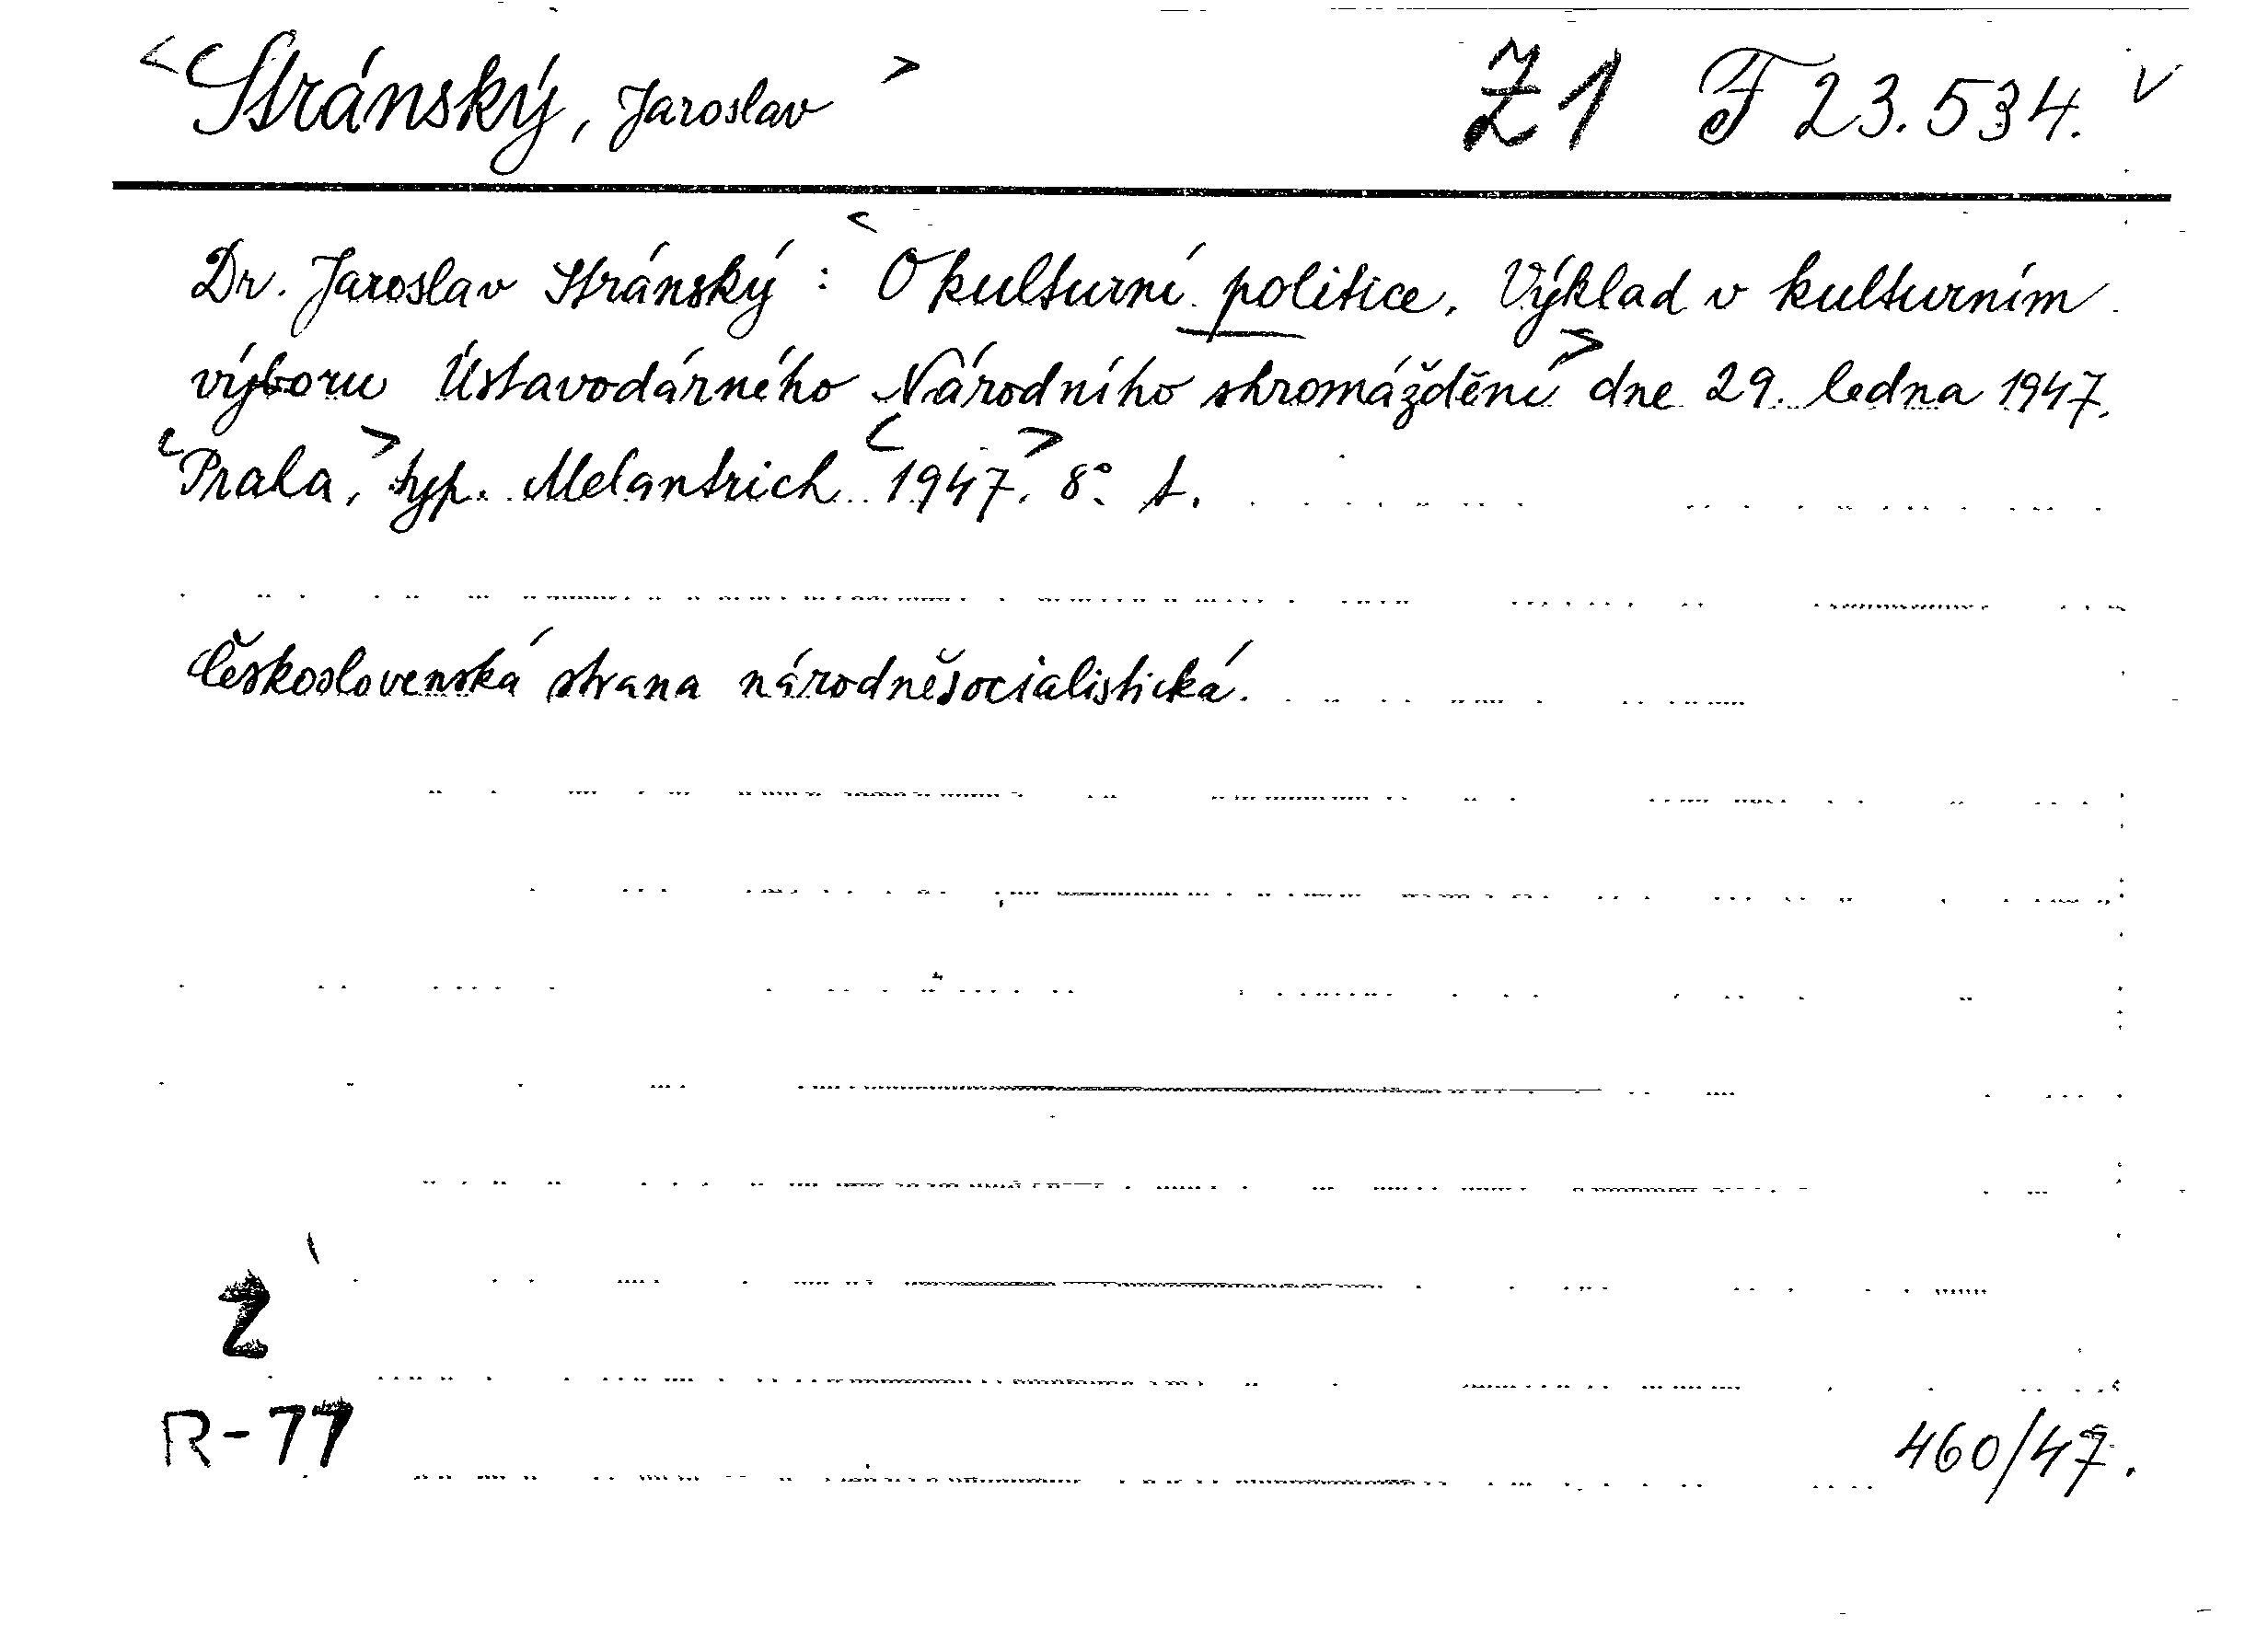 <Stránský, Jaroslav> Z1 F 23.534. v
Dr. Jaroslav Stránský: <O kulturní politice. Výklad v kulturním
výboru Ústavodárného Národního shromáždění> dne 29. ledna 1947.
<Praha,> typ. Melantrich <1947.> 8°.
Československá strana národněsocialistická.
Z
R-77
460/47.